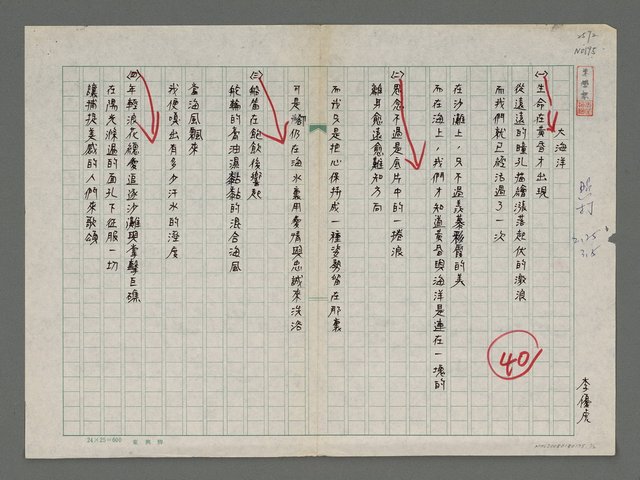 大海洋
李優虎
(一)生命在黃昏才出現
從遠遠的瞳孔描繪漲落起伏的激浪
而我們就已經活過了一次
在沙灘上，只不過羨慕彩霞的美
而在海上，我們才知道黃昏與海洋是連在一塊的
(二)思念不過是底片中的一捲浪
離身愈遠愈難知方向
而我只是把心保持成一種姿勢留在那裏
可是卻仍在海水裏用愛情與忠誠來洗浴
(三)船笛在飽飲後響起
舵輪的膏油濕黏黏的混合海風
當海風飄來
我便嗅出有多少汗水的溼度
(四)年輕浪花總愛追逐沙灘與拿擊巨礁
在陽光滌過的面孔下征服一切
讓捕捉美感的人們來歌頌
40
照打
2.25
3.5
2572
N0595
24×25=600